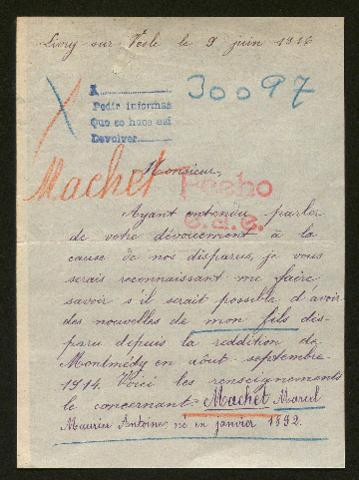 Livry sur Vesle le 9 juin 1916
30097
A
Pedir informas
Que se hace así
Devolver
Machet
Monsieur,
Fecho
Ayant entendu parler
de votre dévouement à la
cause de nos disparus, je vous
serais reconnaissant me faire
savoir s'il serait possible d'avoir
des nouvelles de mon fils dis-
paru depuis la reddition de
Montmédy en août-septembre
1914. Voici les renseignements
le concernant Machet Marcel
Maurice Antoine, né en janvier 1892.